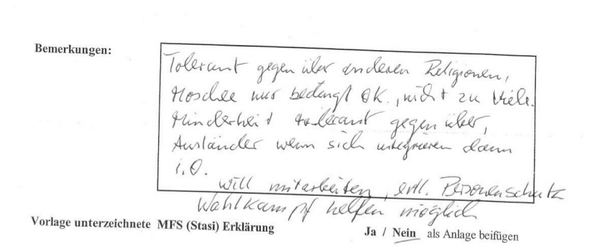 Bemerkungen:
Tolerant gegenüber anderen Religionen,
Moschee nur bedingt OK., nicht zu viele.
Minderheit tolerant gegenüber,
Ausländer wenn sich integrieren dann
i.O.
will mitarbeiten, evtl. Personenschutz
Wahlkampf helfen möglich
Vorlage unterzeichnete MFS (Stasi) Erklärung Ja / Nein als Anlage beifügen